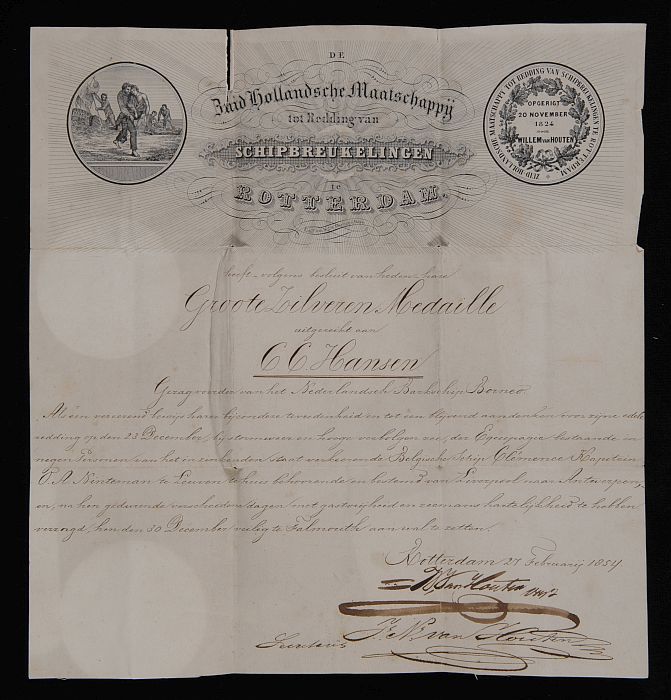 DE
Zuid Hollandsche Maatschappij
tot Redding van
SCHIPBREUKELINGEN
te
ROTTERDAM.
ZUID-HOLLANDSCHE MAATSCHAPPY TOT REDDING VAN SCHIPBREUKELINGEN TE ROTTERDAM
OPGERIGT
20 NOVEMBER
1824
DOOR
WILLEM VAN HOUTEN
heeft volgens besluit van heden hare
Groote Zilveren Medaille
uitgereikt aan
C C Hansen
Gezagvoerder van het Nederlandsch Barkschip Borneo.
Als een vereerend bewijs harer bijzondere tevredenheid en tot een blijvend aandenken voor zijne edele
redding op den 23 December, bij stormweer en hooge verbolgen zee, der Equipagie bestaande in
negen Personen van het in zinkenden staat verkeerende Belgische Schip Clémence Kapitein
te Leuven te huis behoorende en bestemd van Liverpool naar Antwerpen,
en, na hen gedurende verscheidene dagen met gastvrijheid en zeemans hartelijkheid te hebben
verzorgd, hen den 30 December veilig te Falmouth aan wal te zetten.
Rotterdam 27 Februarij 1854
W. van Houten
van Houten
Secretaris